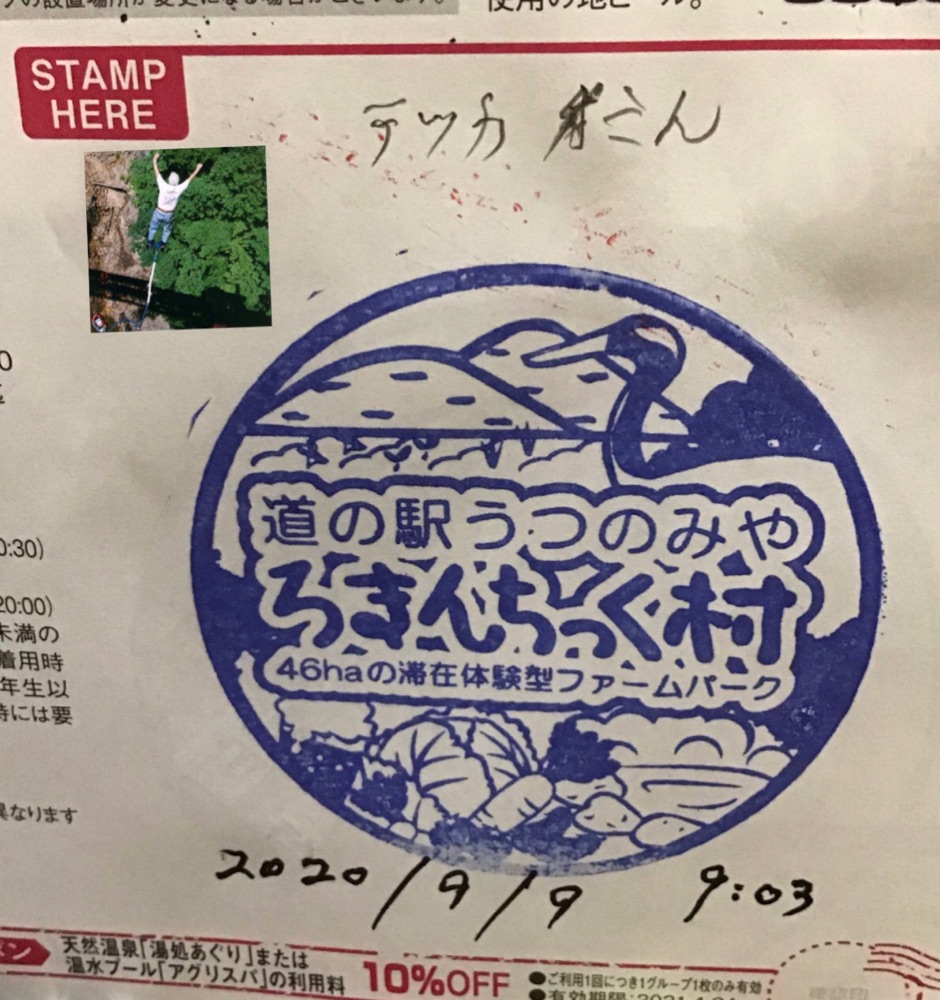 使用の地ビール。
STAMP
HERE
テツカ
さん
0:30)
20:00)
未満の
着用時
年生以
時には要
異なります
道の駅うつのみや
ろまんちっく村
46haの滞在体験型ファームパーク
2020/9/9 9:03
天然温泉「湯処あぐり」または
温水プール「アグリスパ」の利用料
10%OFF
●ご利用1回につき1グループ1枚のみ有効